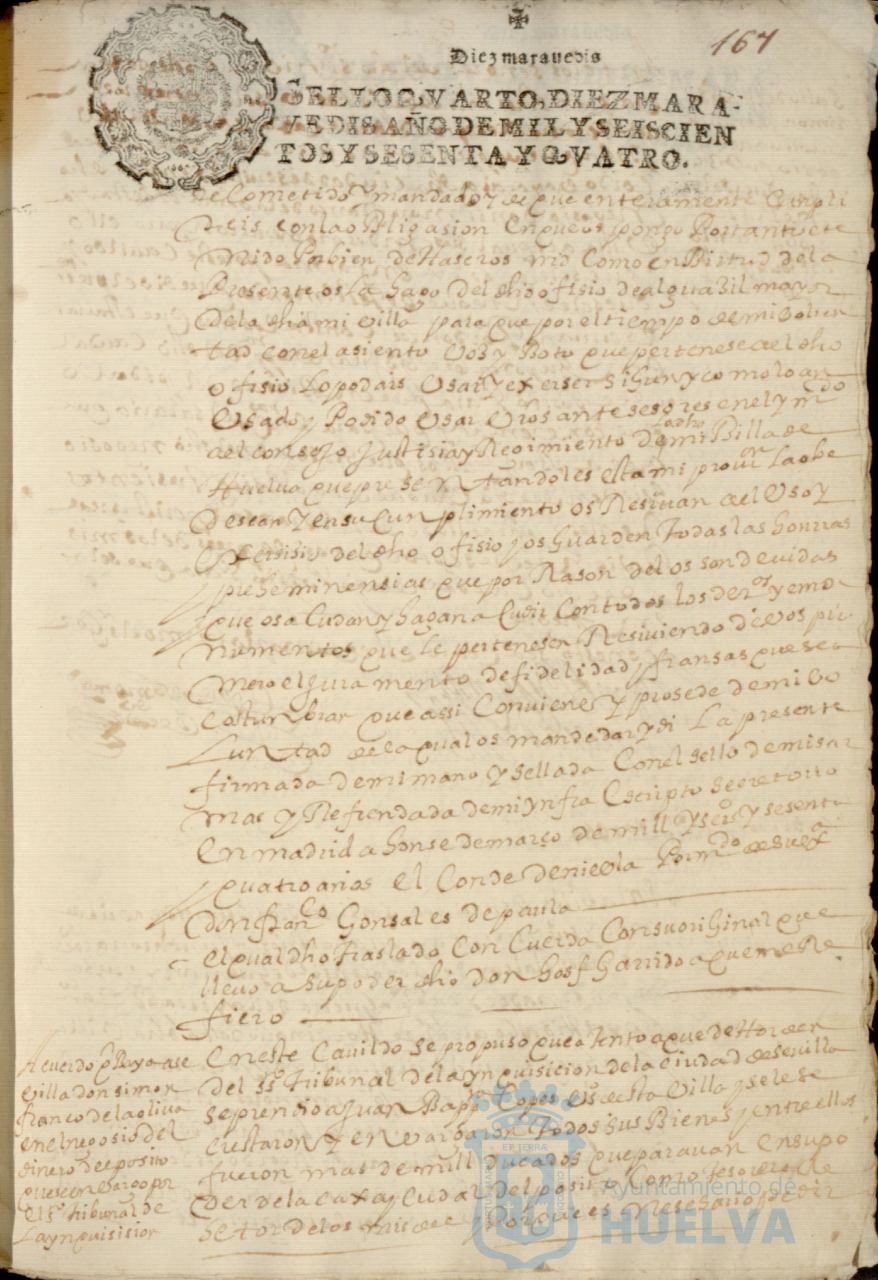 167
Diez maravedis
SELLO QVARTO, DIEZ MARA-
VEDIS, AÑO DE MIL Y SEISCIEN
TOS Y SESENTA Y QVATRO.
de Cometido y mandado y de que enteramente Cunpli
Reis con la obligasion en que os pongo Por tanto e te
nido Por bien de Haseros md Como en Birtud de la
Presente os la hago del dho ofisio de alguasil mayor
de la dha mi Villa para que por el tiempo de mi Bolun
tad con el asiento Vos y Boto que pertenese ael dho
ofisio Lo podais Usar y exerser Sigun y como lo an
Usado y Podido Usar Vros antesesores en el y mdo
ael consejo Justisia y Regimiento de la dha mi Billa de
Huelva que presentandoles esta mi provon La obe
descan y en su Cunplimiento os Resivan ael Uso y
exersisio del dho ofisio y os Guarden todas las honras
preheminensias que por Rason del os son devidas
y que os aCudan y hagan aCudir Con todos los deros y emo
numentos que le pertenesen Resiviendo de vos pri
mero el Juramento de fidelidad y fiansas que se a
costunbrar que assi Conviene y prosede de mi Bo
Luntad de la qual os mande dar y di La presente
firmada de mi mano y sellada Con el sello de mis ar
mas y Refrendada de mi ynfra Escripto secretario
en madrid a honse de março de mill y seisos y sesenta
y quatro años el Conde de niebla Por mdo de su exa
don franco Gonsales de paula
el qual dho traslado Con Cuerda Con su oriGinal que
llevo a su poder dho don Josf Garrido a quien me Re
fiero
Acuerdo pa Vaya a se
villa don simon
franco de la oliva
en el negosio del
dinero de posito
que se enbargo por
el sto tribunal de
La ynquisision
en este Cavildo se propuso que a tento a que de Horden
del sto tribunal de la ynquisicion de la ciudad de sevilla
se prendio a Juan Bapta Lopes vo de esta Villa y se le se
crestaron y en bargaron todos sus Bienes y entre ellos
fueron mas de mill ducados que paravan en su po
der de la caxa y Cudal del posito Como tesorero de
Ayuntamiento de
HUELVA